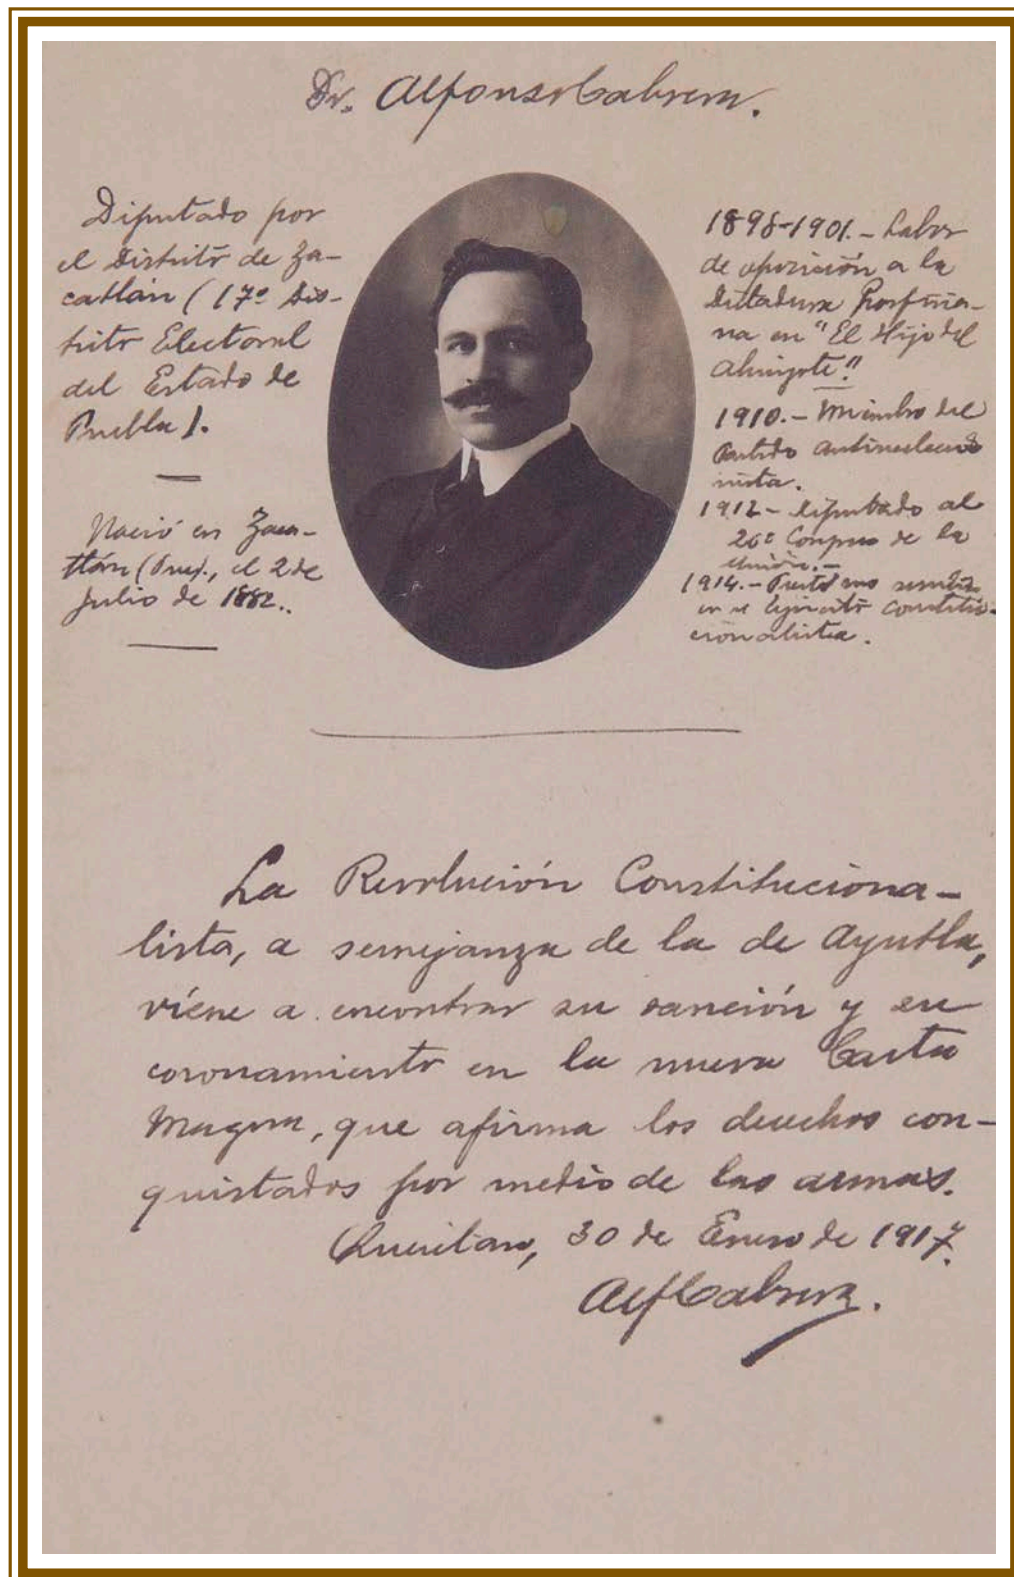 Dr. Alfonso Cabrera.
Diputado por
el Distrito de Za-
catlán (17º Dis-
trito Electoral
del Estado de
Puebla).
Nació en Zaca-
tlán (Pue)., el 2 de
Julio de 1882..
1898-1901.- Labor
de oposición a la
Dictadura Porfiria-
na en "El Hijo del
Ahuizote".
1910.- Miembro del
Partido Antireeleccio
nista.
1912- Diputado al
26º Congreso de la
Unión.-
1914.- Prestó sus servicios
en el Ejército Constitu-
cionalista.
La Revolución Constituciona-
lista, a semejanza de la de Ayutla,
viene a encontrar su sanción y su
coronamiento en la nueva Carta
Magna, que afirma los derechos con-
quistados por medio de las armas.
Querétaro, 30 de Enero de 1917.
Alf Cabrera.